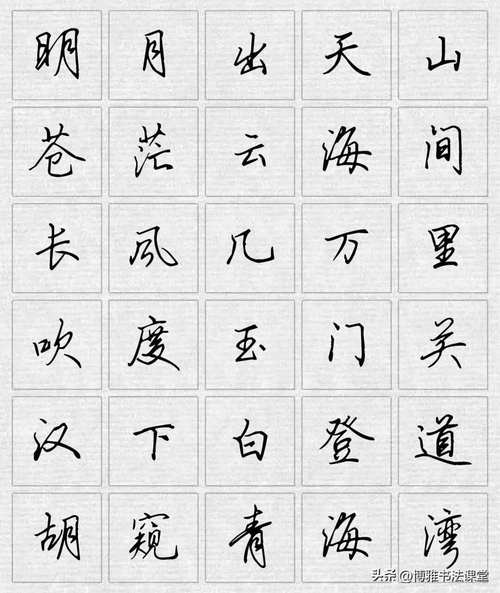 明月出天山
苍茫云海间
长風几万里
吹度玉门关
汉下白登道
胡窥青海湾
头条 @博雅书法课堂